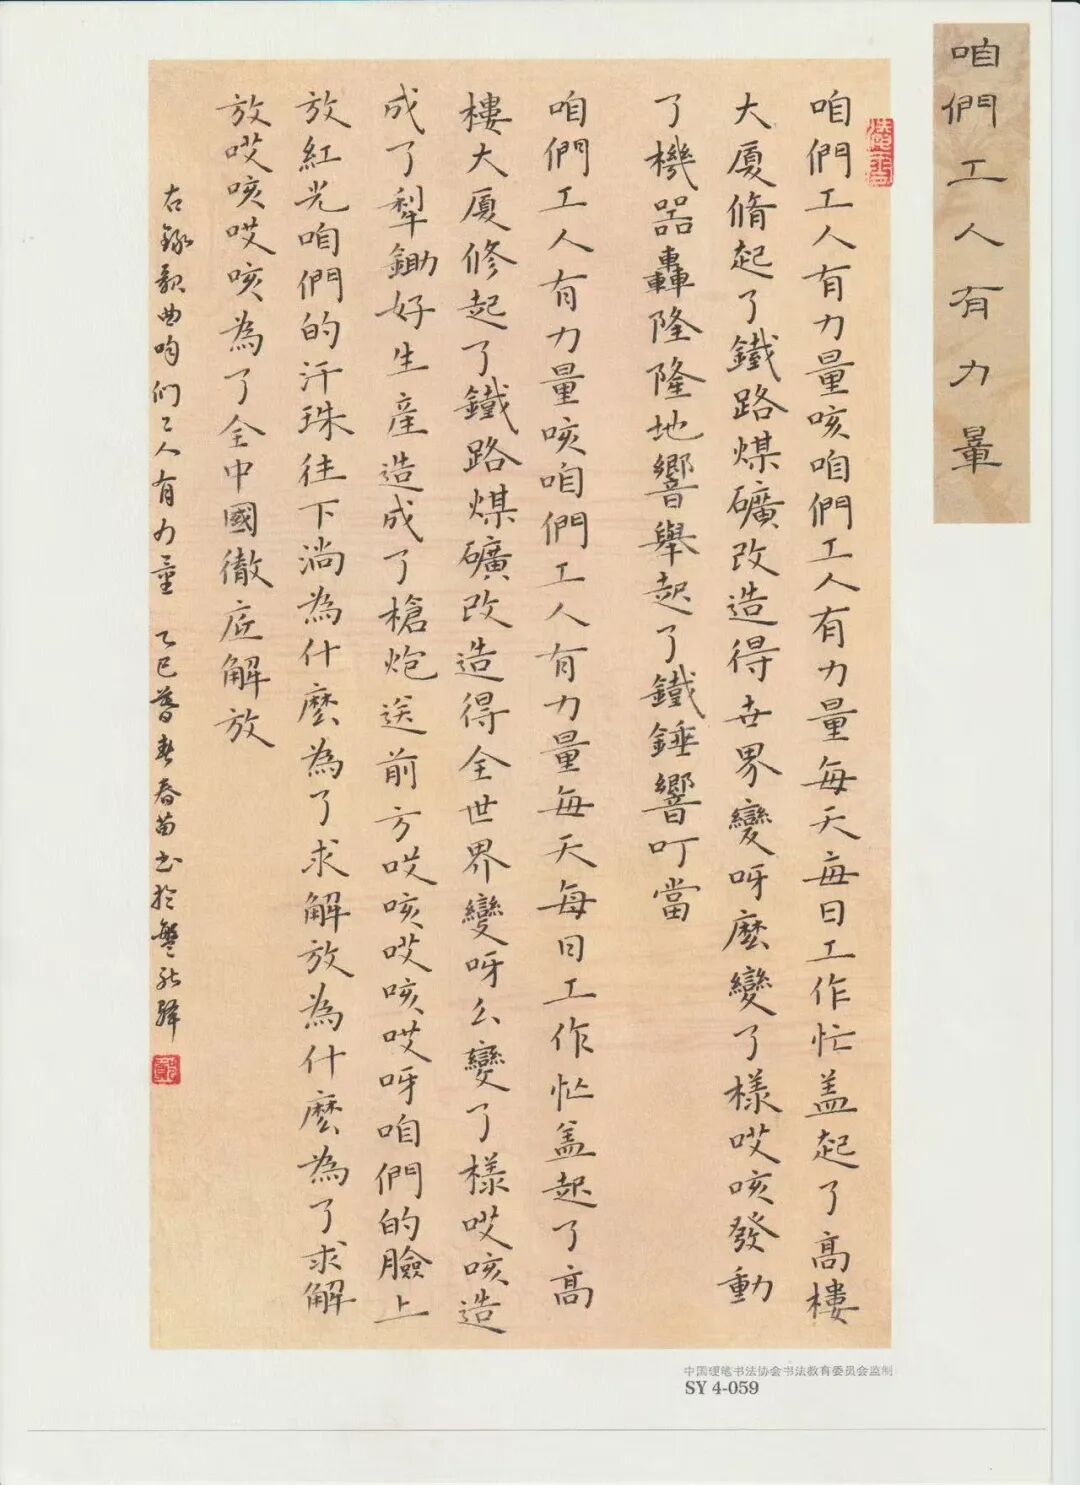 咱們工人有力量
咱們工人有力量咳咱們工人有力量每天每日工作忙盖起了高樓
大厦脩起了鐵路煤礦改造得世界變呀麽變了樣哎咳發動
了機器轟隆隆地響舉起了鐵錘響叮當
咱們工人有力量咳咱們工人有力量每天每日工作忙盖起了高
樓大厦修起了鐵路煤礦改造得全世界變呀么變了樣哎咳造
成了犁鋤好生産造成了槍炮送前方哎咳哎咳哎呀咱們的臉上
放紅光咱們的汗珠往下淌為什麽為了求解放為什麽為了求解
放哎咳哎咳為了全中國徹底解放
右錄歌曲咱们工人有力量 乙巳暮春春苗书於
中国硬笔书法协会书法教育委员会监制
SY 4-059